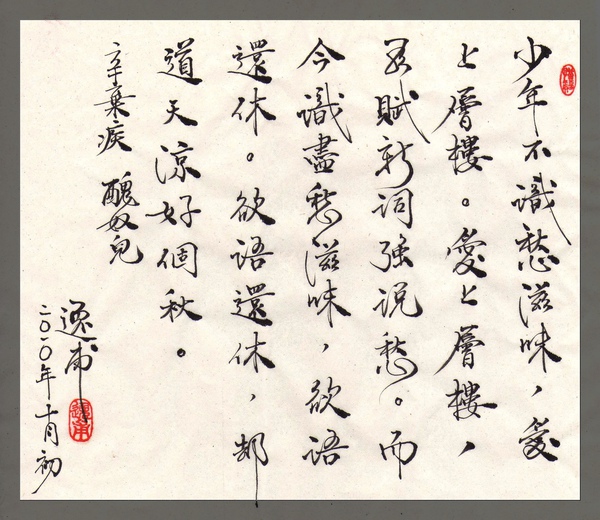 少年不識愁滋味，愛
上層樓。愛上層樓，
為賦新詞強说愁。而
今識盡愁滋味，欲語
還休。欲語還休，卻
道天涼好個秋。
辛棄疾 醜奴兒
逸甫
二〇一〇年十月初